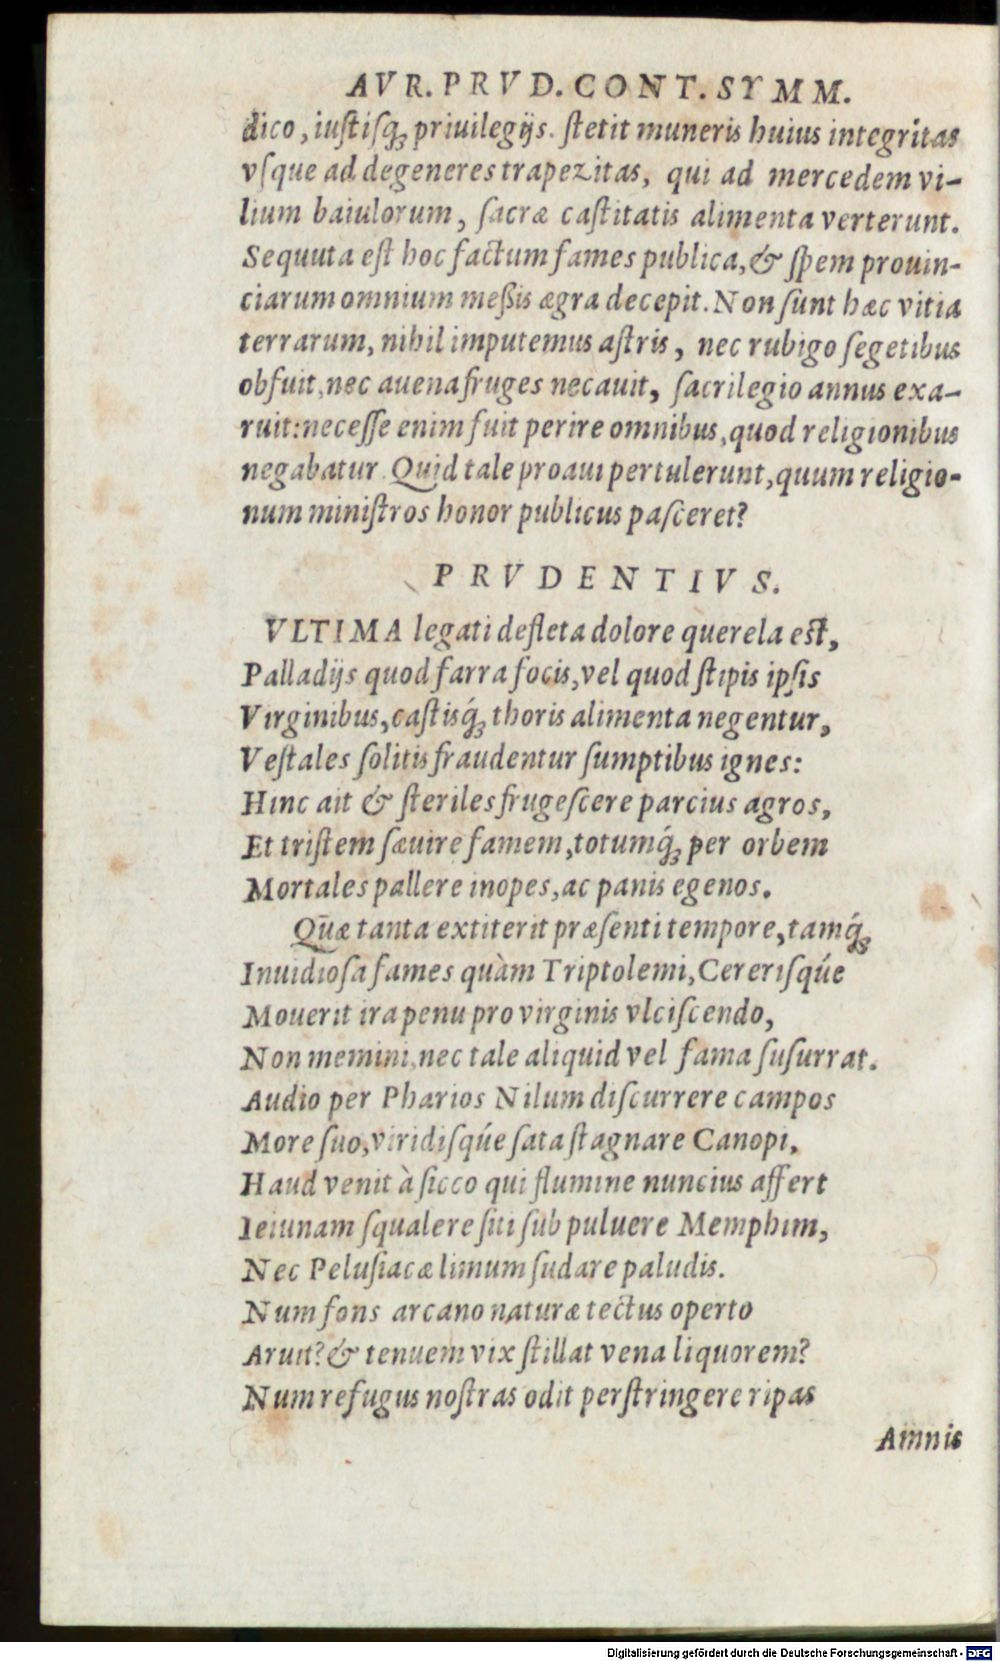 AVR. PRVD. CONT. SYMM.
dico, iustisq́; priuilegijs. stetit muneris huius integritas
vsque ad degeneres trapezitas, qui ad mercedem vi-
lium baiulorum, sacræ castitatis alimenta verterunt.
Sequuta est hoc factum fames publica, & spem prouin-
ciarum omnium meßis ægra decepit. Non sunt hæc vitia
terrarum, nihil imputemus astris, nec rubigo segetibus
obfuit, nec auena fruges necauit, sacrilegio annus exa-
ruit: necesse enim fuit perire omnibus, quod religionibus
negabatur. Quid tale proaui pertulerunt, quum religio-
num ministros honor publicus pasceret?
PRVDENTIVS.
VLTIMA legati defleta dolore querela est,
Palladijs quod farra focis, vel quod stipis ipsis
Virginibus, castisq́; thoris alimenta negentur,
Vestales solitis fraudentur sumptibus ignes:
Hinc ait & steriles frugescere parcius agros,
Et tristem sæuire famem, totumq́; per orbem
Mortales pallere inopes, ac panis egenos.
Quæ tanta extiterit præsenti tempore, tamq́;
Inuidiosa fames quàm Triptolemi, Cererisqúe
Mouerit ira penu pro virginis vlciscendo,
Non memini, nec tale aliquid vel fama susurrat.
Audio per Pharios Nilum discurrere campos
More suo, viridisqúe sata stagnare Canopi,
Haud venit à sicco qui flumine nuncius affert
Ieiunam squalere siti sub puluere Memphim,
Nec Pelusiacæ limum sudare paludis.
Num fons arcano naturæ tectus operto
Aruit? & tenuem vix stillat vena liquorem?
Num refugus nostras odit perstringere ripas
Amnis
Digitalisierung gefördert durch die Deutsche Forschungsgemeinschaft - DFG